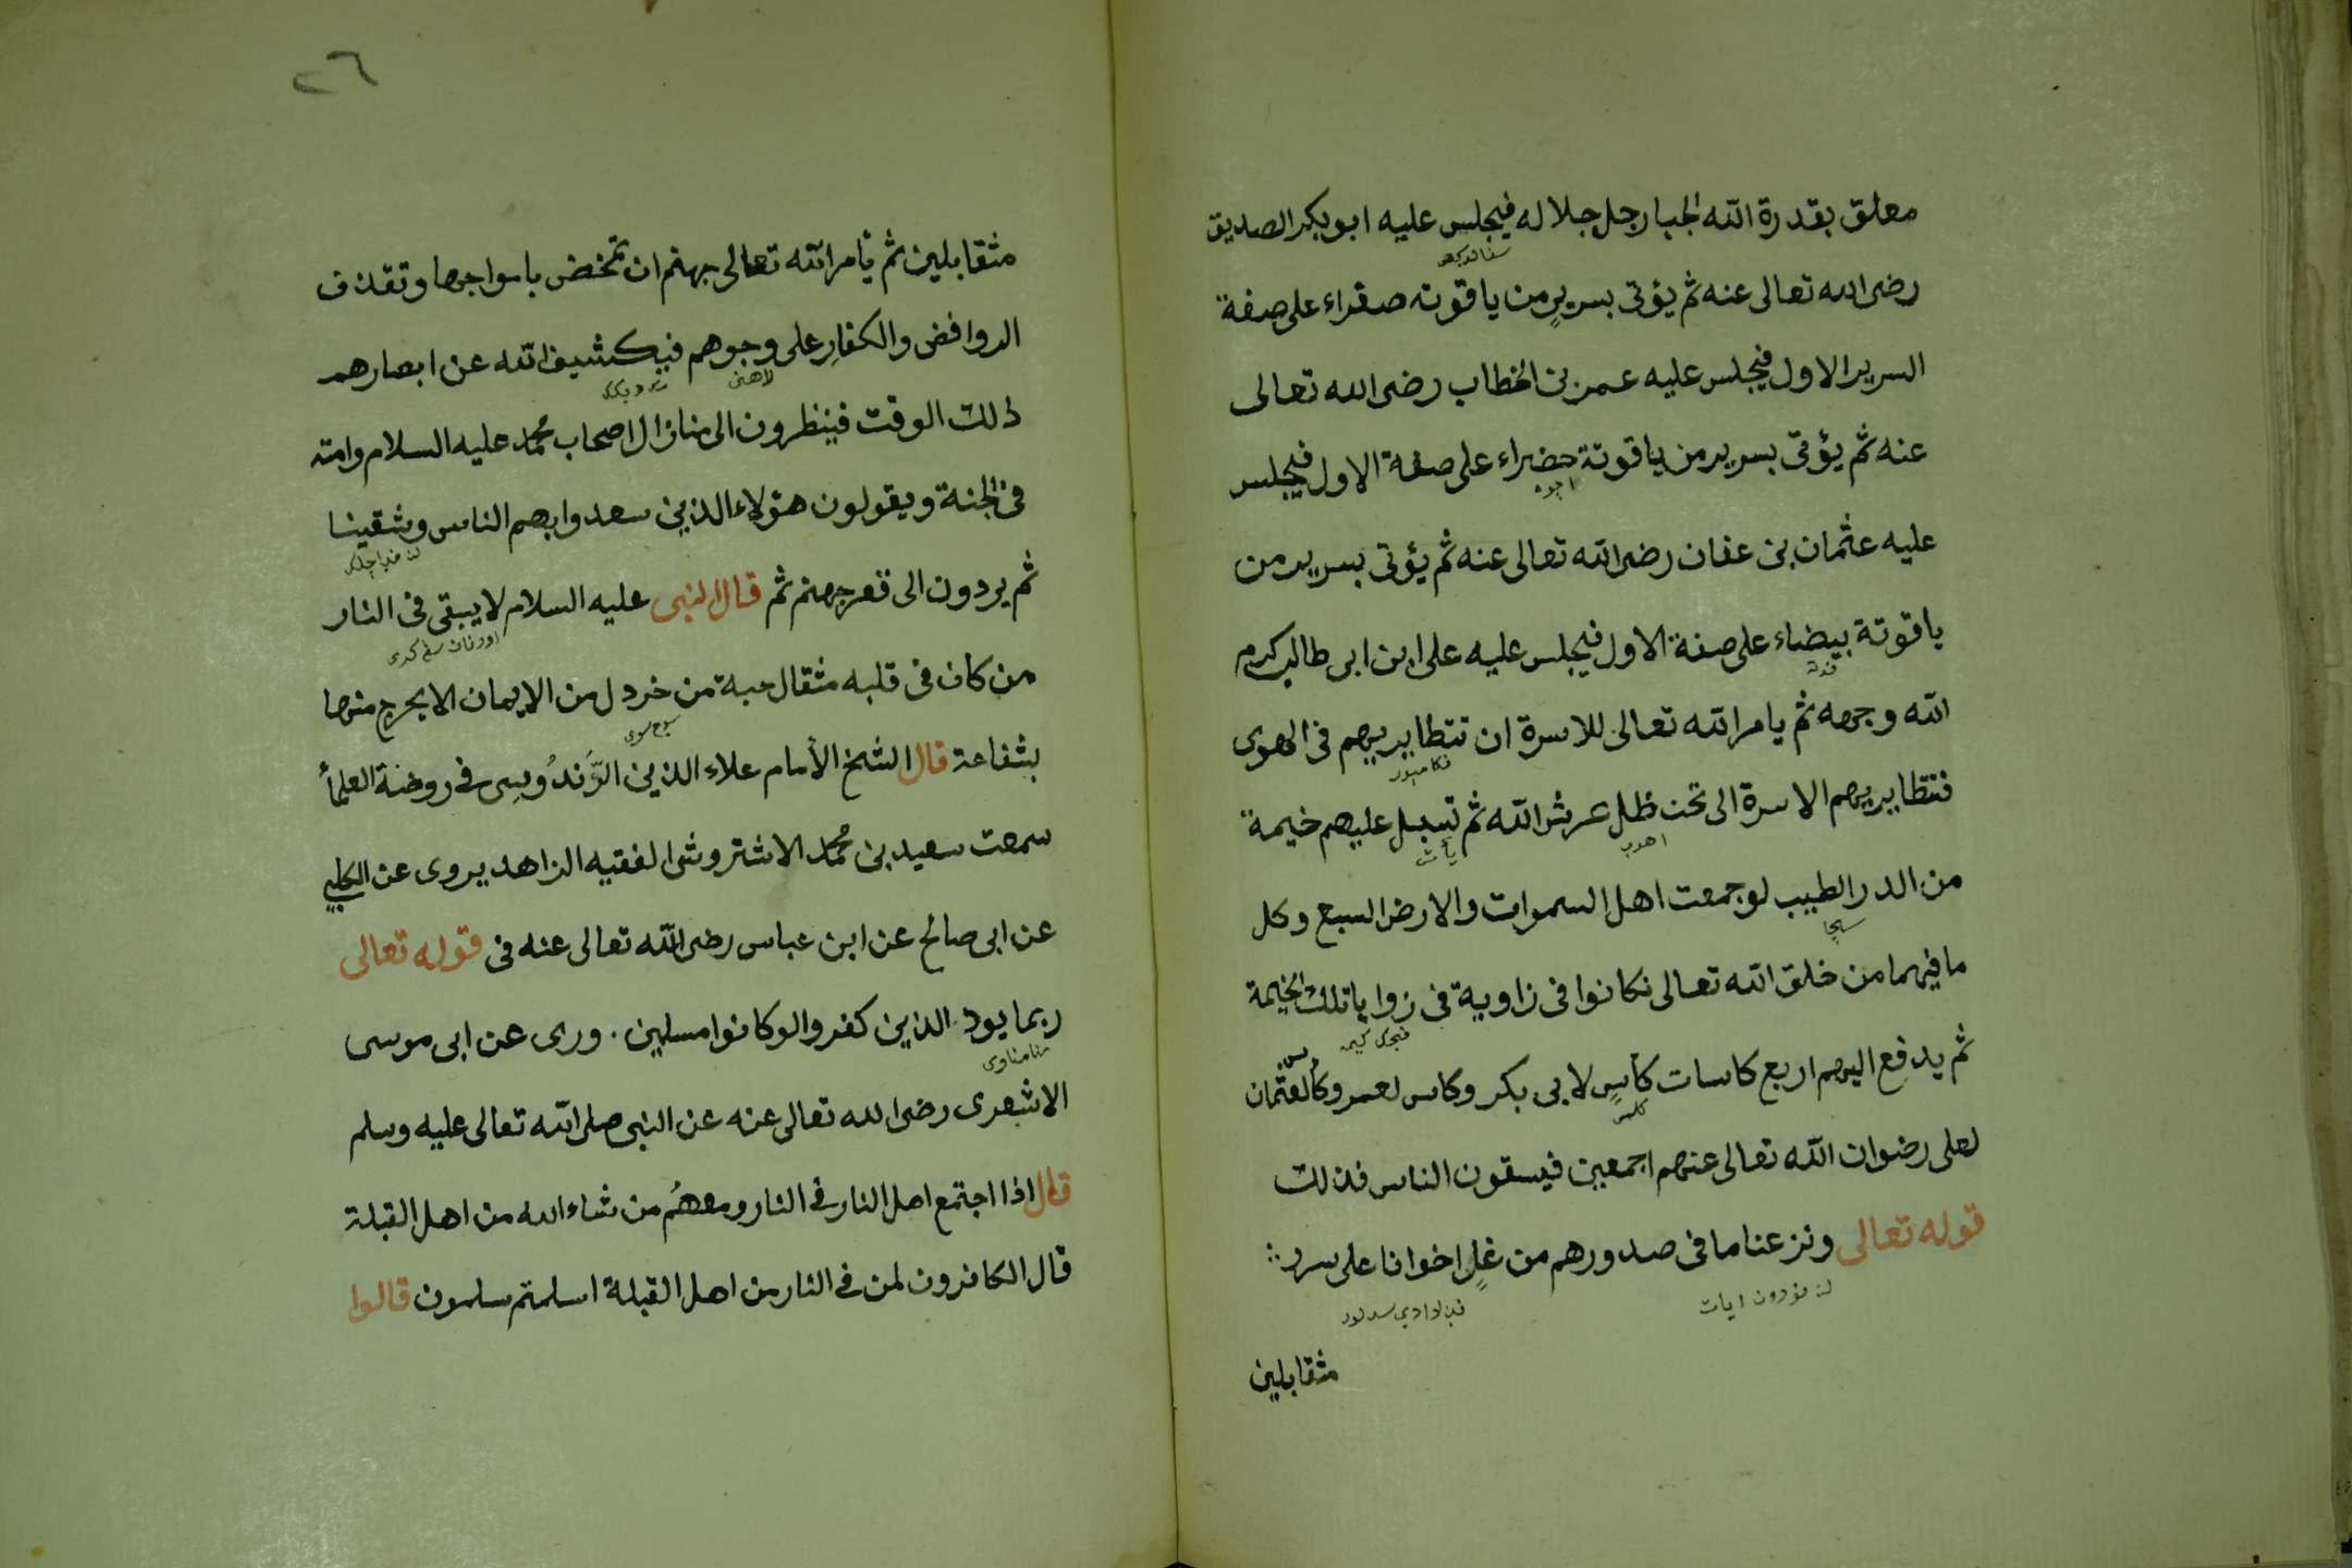 معلق بقدرة الله الجبار جل جلاله فيجلس عليه ابو بكر الصديق
رضى الله تعالى عنه ثم يؤتى بسرير من ياقوته صفراء على صفة
السرير الاول فيجلس عليه عمر بن الخطاب رضى الله تعالى
عنه ثم يؤتى بسرير من ياقوتة حضراء على صفة الاول فيجلس
عليه عثمان بن عفان رضى الله تعالى عنه ثم يؤتى بسرير من
ياقوتة بيضاء على صفة الاول فيجلس عليه على ابن ابى طالب كرم
الله وجهه ثم يامر الله تعالى للاسرة ان تتطاير بهم فى الهوى
فتتطاير بهم الاسرة الى تحت ظل عرش الله ثم تسبل عليهم خيمة
من الدر الطيب لو جمعت اهل السموات والارض السبع وكل
ما فيهما من خلق الله تعالى نكانوا فى زاوية فى زوايا تلك الخيمة
ثم يدفع اليهم اربع كاسات كأسٍ لابى بكر وكاس لعمر وكأس لعثمان
لعلى رضوان الله تعالى عنهم اجمعين فيسقون الناس فذلك
قوله تعالى ونزعنا ما فى صدورهم من غلٍ اخوانا على سرر
مثقابلين
٢٦
مثقابلين ثم يأمر الله تعالى جهنم ان تمخض بامواجها وتقذف
الروافض والكفارِ على وجوههم فيكشيف الله عن ابصارهم
ذلك الوقت فينظرون الى منازال اصحاب محمد عليه السلام وامته
فى الجنة ويقولون هؤلاء الذين سعدوا بهم الناس وشقينا
ثم يردون الى قعر جهنم ثم قال النبى عليه السلام لا يبقى فى النار
من كان فى قلبه مثقال حبة من خردل من الايمان الا يخرج منها
بشفاعة قال الشخ الأمام علاء الذين الزَّندُويسِى فى روضة العلمأ
سمعت سعيد بن محمد الاشتروشى الفقيه الزاهد يروى عن الكلبي
عن ابى صالح عن ابن عباس رضى الله تعالى عنه فى قوله تعالى
ربما يود الذين كفروا لو كانوا مسلمين . ورى عن ابى موسى
الاشعرى رضى الله تعالى عنه عن النبى صلى الله تعالى عليه وسلم
قال اذا اجتمع اهل النار فى النار ومعهُم من شاء الله من اهل القبلة
قال الكافرون لمن فى النار من اهل القبلة اسلمتم مسلمون قالوا